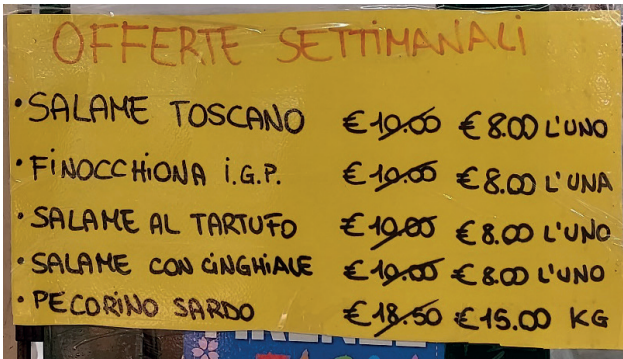 OFFERTE SETTIMANALI
• SALAME TOSCANO € 10.00 € 8.00 L'UNO
• FINOCCHIONA I.G.P. € 10.00 € 8.00 L'UNA
• SALAME AL TARTUFO € 10.00 € 8.00 L'UNO
• SALAME CON CINGHIALE € 10.00 € 8.00 L'UNO
• PECORINO SARDO € 18.50 € 15.00 KG